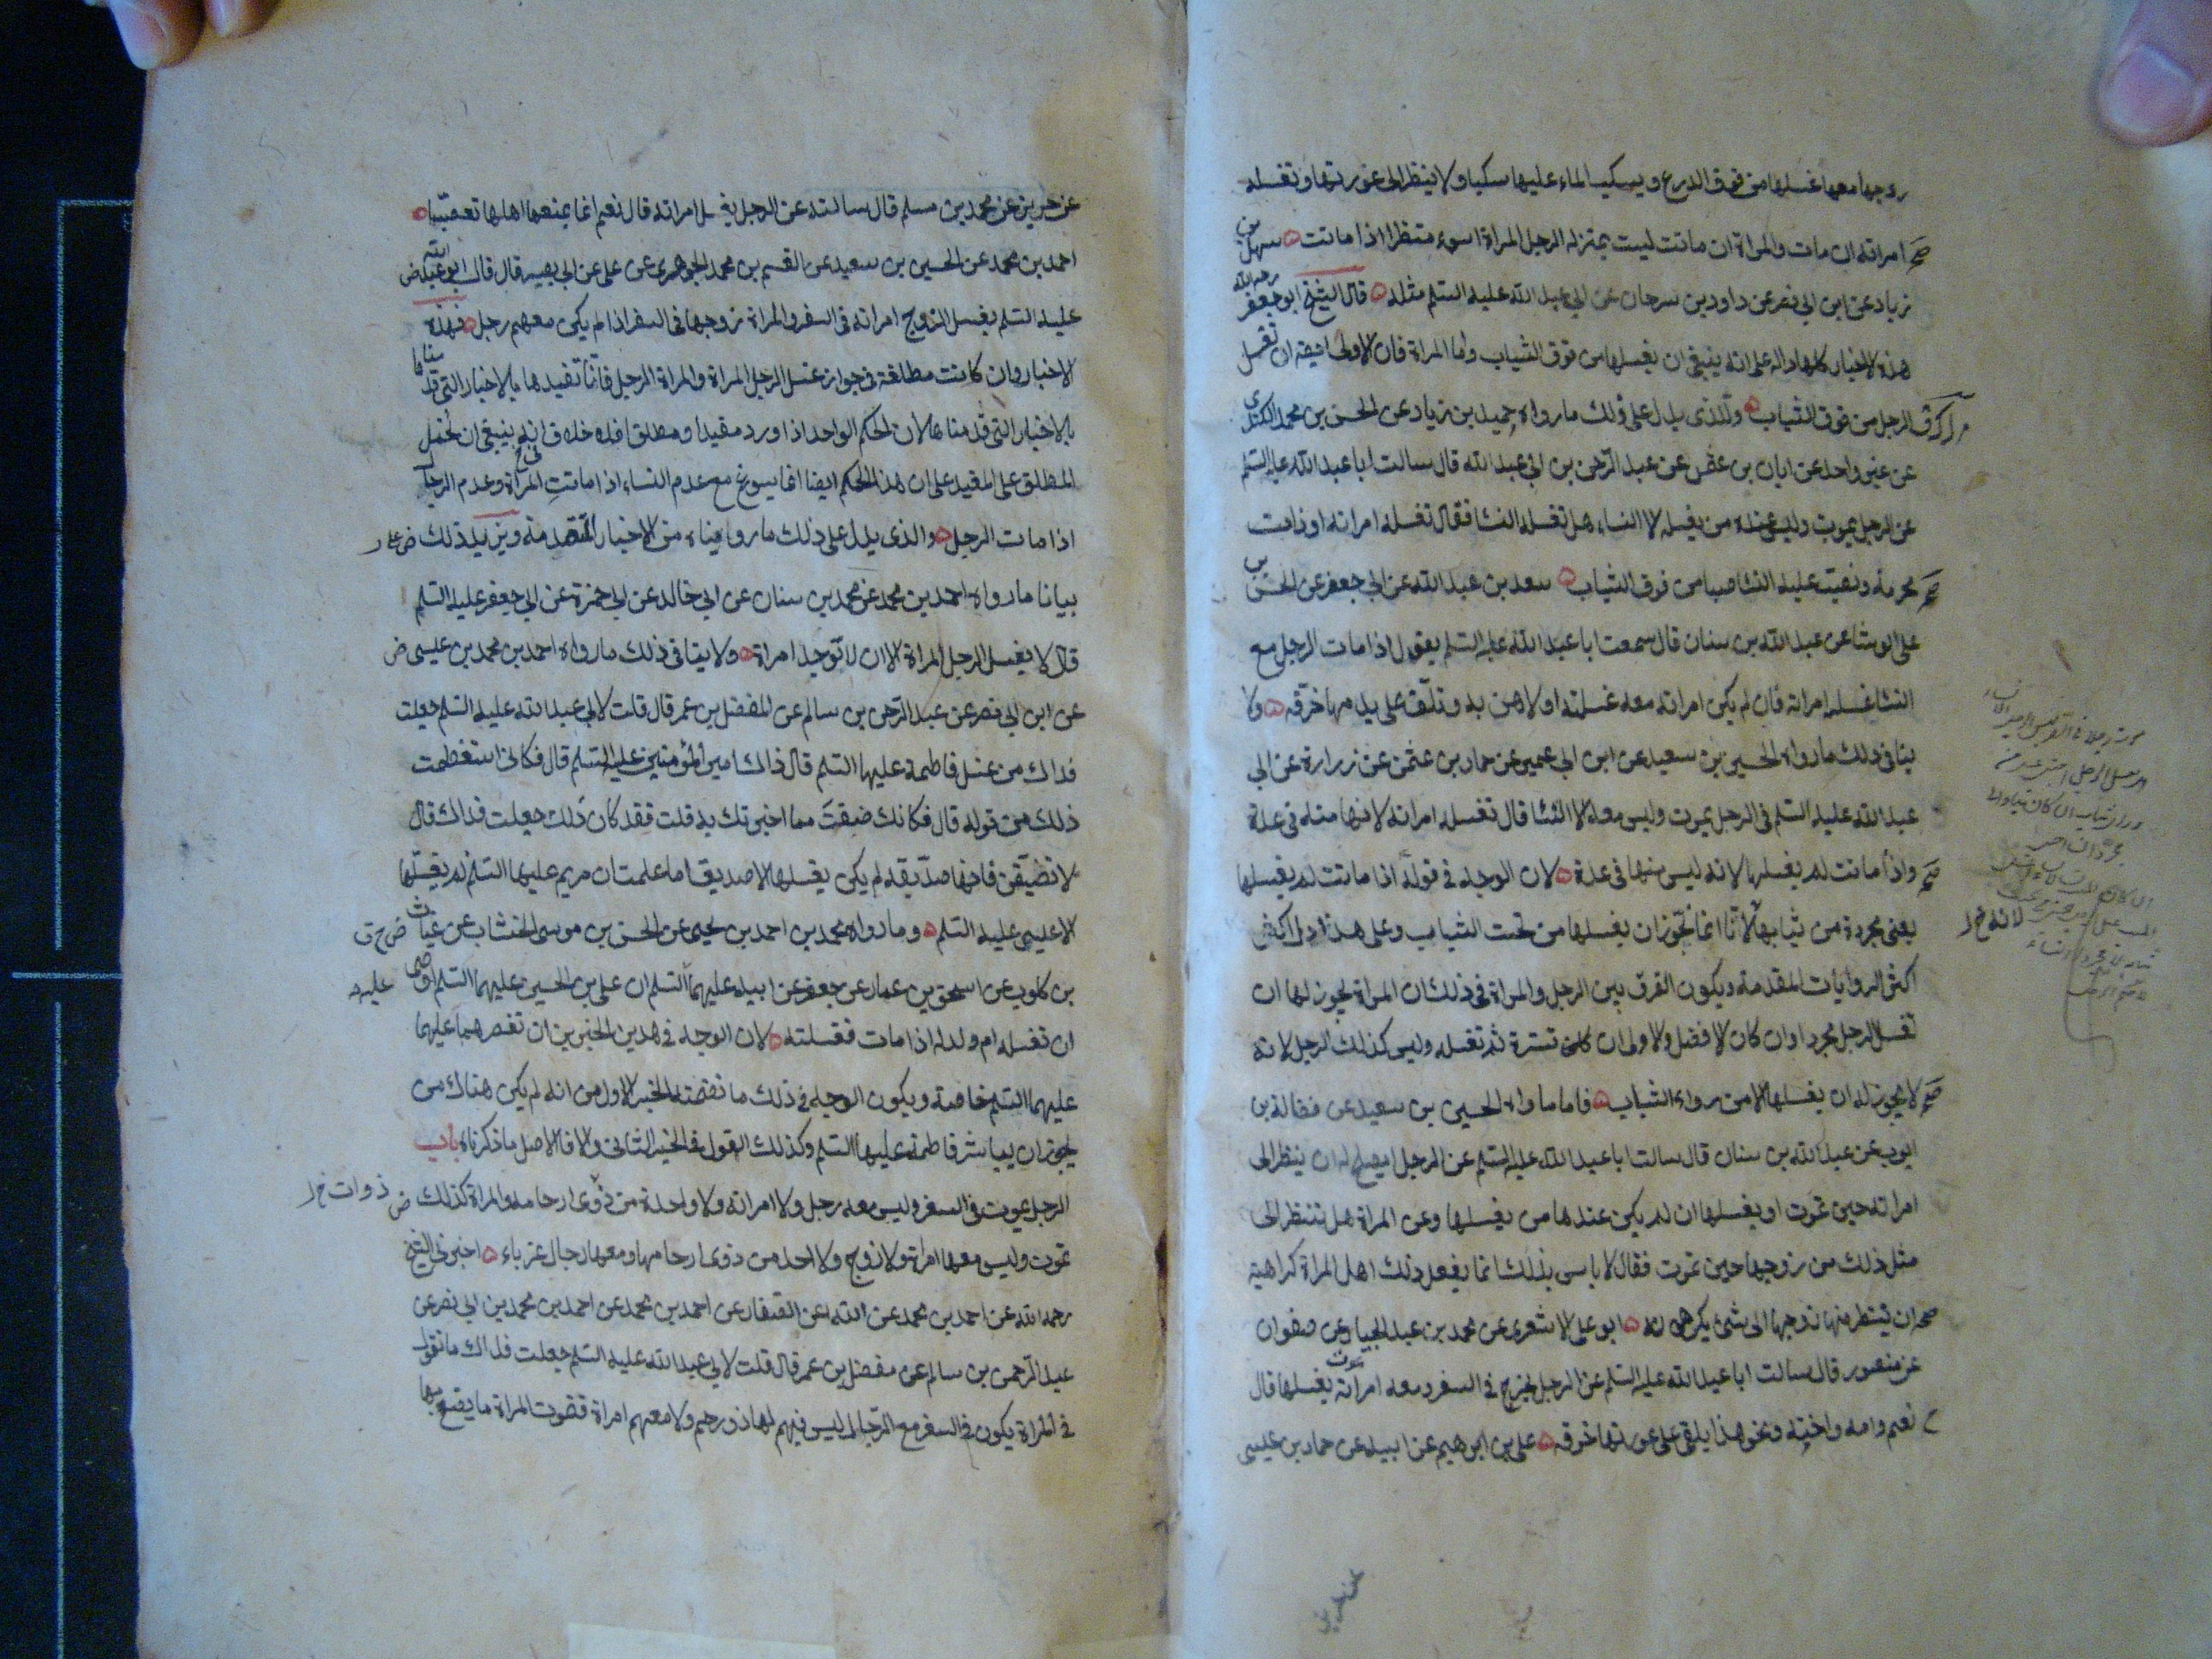 زوجها معها غسلها من فوق الدرع ويسكب الماء عليها سكبا ولا ينظر الى عورتها وتغسله
امراته ان مات والمراة ان ماتت ليست بمنزلة الرجل المراة اسوء منظرا اذا ماتت سهل بن
زياد عن ابن ابي نصر عن داود بن سرحان عن ابي عبد الله عليه السلم مثله قال الشيخ ابو جعفر رحمه الله
هذه الاخبار كلها دالة على انه ينبغي ان يغسلها من فوق الثياب واما المراة فان الاولى ايضا ان تغسل
الرجل من فوق الثياب والذي يدل على ذلك ما رواه حميد بن زياد عن الحسن بن محمد الكندي
عن غير واحد عن ابان بن عثمن عن عبد الرحمن بن ابي عبد الله قال سالت ابا عبد الله عليه السلم
عن الرجل يموت وليس عنده من يغسله الا النساء هل تغسله النسا فقال تغسله امراته او ذات
محرمة وتصب عليه النسا صبا من فوق الثياب سعد بن عبد الله عن ابي جعفر عن الحسن بن
على الوشا عن عبد الله بن سنان قال سمعت ابا عبد الله عليه السلم يقول اذا مات الرجل مع
النسا غسلته امراته فان لم يكن امراته معه غسلته اولاهن به وتلف على يديها خرقة ولا
ينافى ذلك ما رواه الحسين بن سعيد عن ابن ابي عمير عن حماد بن عثمن عن زرارة عن ابي
عبد الله عليه السلم فى الرجل يموت وليس معه الا النسا قال تغسله امراته لانها منه فى عدة
واذا ماتت لم يغسلها لانه ليس منها فى عدة لان الوجه فى قوله اذا ماتت لم يغسلها
يعنى مجردة من ثيابها لانا انما نجوز ان يغسلها من تحت الثياب وعلى هذا دل اكثر
اكثر الروايات المقدمة ويكون الفرق بين الرجل والمراة فى ذلك ان المراة يجوز لها ان
تغسل الرجل مجردا وان كان الافضل والاولى ان تستره ثم تغسله وليس كذلك الرجل لانه
لا يجوز له ان يغسلها الا من وراء الثياب فاما ما رواه الحسين بن سعيد عن فضالة بن
ايوب عن عبد الله بن سنان قال سالت ابا عبد الله عليه السلم عن الرجل ايصلح له ان ينظر الى
امراته حين تموت او يغسلها ان لم يكن عندها من يغسلها وعن المراة هل تنظر الى
مثل ذلك من زوجها حين تموت فقال لا باس بذلك انما يفعل ذلك اهل المراة كراهية
ان ينظر منها زوجها الى شئ يكرهونه ابو على الاشعرى عن محمد بن عبد الجبار عن صفوان
عن منصور قال سالت ابا عبد الله عليه السلم عن الرجل يخرج فى السفر ومعه امراته يغسلها قال
نعم وامه واخته ونحو هذا يلقى على عورتها خرقة على بن ابرهيم عن ابيه عن حماد بن عيسى
عن حريز عن محمد بن مسلم قال سالته عن الرجل يغسل امراته قال نعم انما يمنعها اهلها تعصبا
احمد بن محمد عن الحسين بن سعيد عن القسم بن محمد الجوهرى عن على عن ابي بصير قال قال ابو عبد الله
عليه السلم يغسل الزوج امراته فى السفر والمراة زوجها فى السفر اذا لم يكن معهم رجل فهذه
الاخبار وان كانت مطلقة فى جواز غسل الرجل المراة والمراة الرجل فانا نقيدها بالاخبار التى قدمناها
بالاخبار التى قدمناها لان الحكم الواحد اذا ورد مقيدا ومطلقا فلا خلاف انه ينبغى ان يحمل
المطلق على المقيد على ان هذا الحكم ايضا انما يسوغ مع عدم النساء اذا ماتت المراة وعدم الرجال
اذا مات الرجل والذى يدل على ذلك ما رويناه من الاخبار المتقدمة ويزيد ذلك
بيانا ما رواه احمد بن محمد عن محمد بن سنان عن ابي خالد عن ابي حمزة عن ابي جعفر عليه السلم
قال لا يغسل الرجل المراة الا ان لا توجد امراة ولا ينافى ذلك ما رواه احمد بن محمد بن عيسى
عن ابن ابي نصر عن عبد الرحمن بن سالم عن المفضل بن عمر قال قلت لابي عبد الله عليه السلم جعلت
فداك من غسل فاطمة عليها السلم قال ذاك امير المؤمنين عليه السلم قال فكانى استعظمت
ذلك من قوله قال فكانك ضقت مما اخبرتك به قلت فقد كان ذلك جعلت فداك قال
لا تضيقن فانها صديقة لم يكن يغسلها الا صديق اما علمت ان مريم عليها السلم لم يغسلها
الا عيسى عليه السلم وما رواه محمد بن احمد بن يحيى عن الحسن بن موسى الخشاب عن غياث
بن كلوب عن اسحق بن عمار عن جعفر عن ابيه عليهما السلم ان على بن الحسين عليهما السلم اوصى
ان تغسله ام ولد له اذا مات فغسلته لان الوجه فى هذين الخبرين ان نقصرهما عليهما
عليهما السلم خاصة ويكون الوجه فى ذلك ما تضمنه الخبر الاول من انه لم يكن هناك من
يجوز ان يباشر فاطمة عليها السلم وكذلك القول فى الخبر الثانى والا فالاصل ما ذكرناه باب
الرجل يموت فى السفر وليس معه رجل ولا امراته ولا واحدة من ذوى ارحامه والمراة كذلك ذوات خ ل
تموت وليس معها امراة ولا زوج ولا احد من ذوى ارحامها ومعها رجال غرباء اخبرنى الشيخ
رحمه الله عن احمد بن محمد عن ابيه عن الصفار عن احمد بن محمد عن احمد بن محمد بن ابي نصر عن
عبد الرحمن بن سالم عن مفضل بن عمر قال قلت لابي عبد الله عليه السلم جعلت فداك ما تقول
فى المراة يكون فى السفر مع الرجال ليس فيهم لها ذو رحم ولا معهم امراة فتموت المراة ما يصنع بها